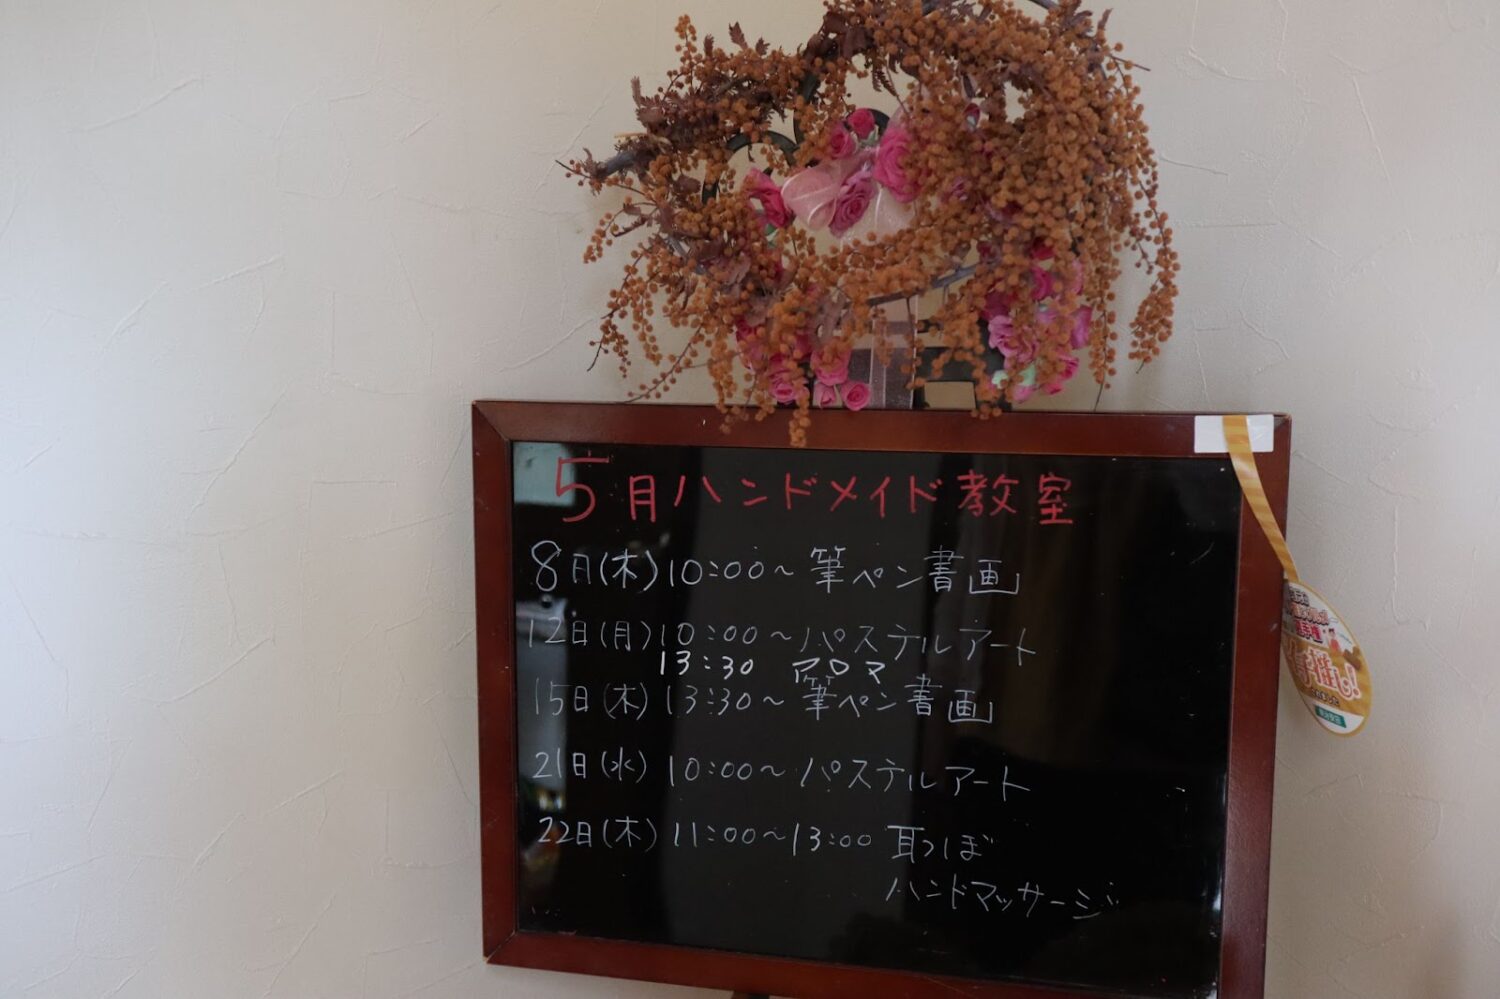 5月ハンドメイド教室
8日(木)10:00〜 筆ペン書画
12日(月)10:00〜パステルアート
13:30 アロマ
15日(木)13:30〜筆ペン書画
21日(水)10:00〜パステルアート
22日(木)11:00〜13:00 耳つぼ
ハンドマッサージ